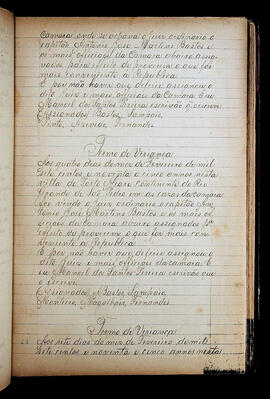 Camara onde se achava o Juiz ordinario o
capitão Antonio José Martins Bastos e
os mais officiaes da Camara abaixo assig-
nados para efeito de proverem o que for
mais conveniente a Republica.
E por não haver que deferir assignou o
dito Juiz e mais officiaes da Camara. E eu
Manoel dos Santos Pereira escrivão q. escrevi
Assignados, Bastos, Sampaio,
Pinto, Azevedo, Fernandes.
Termo de Veriança
Aos quatro dias do mez de Fevereiro de mil
sete centos e noventa e cinco annos nesta
villa de Porto Alegre continente do Rio
Grande de São Pedro em as casas da camara
vindo o Juiz ordinario o capitão An-
tonio José Martins Bastos e os mais of-
ficiaes da Camara abaixo assignados for
effeito de proverem o que for mais con-
veniente a Republica.
E por não haver que deferir assignou o
dito Juiz e mais officiaes da camara. E
eu Manoel dos Santos Pereira escrivão que
o escrevi.
Assignados, Bastos, Sampaio,
Monteiro, Magalhães, Fernandes.
Termo de Veriança
Aos sete dias do mez de Fevereiro de mil
sete centos e noventa e cinco annos nesta